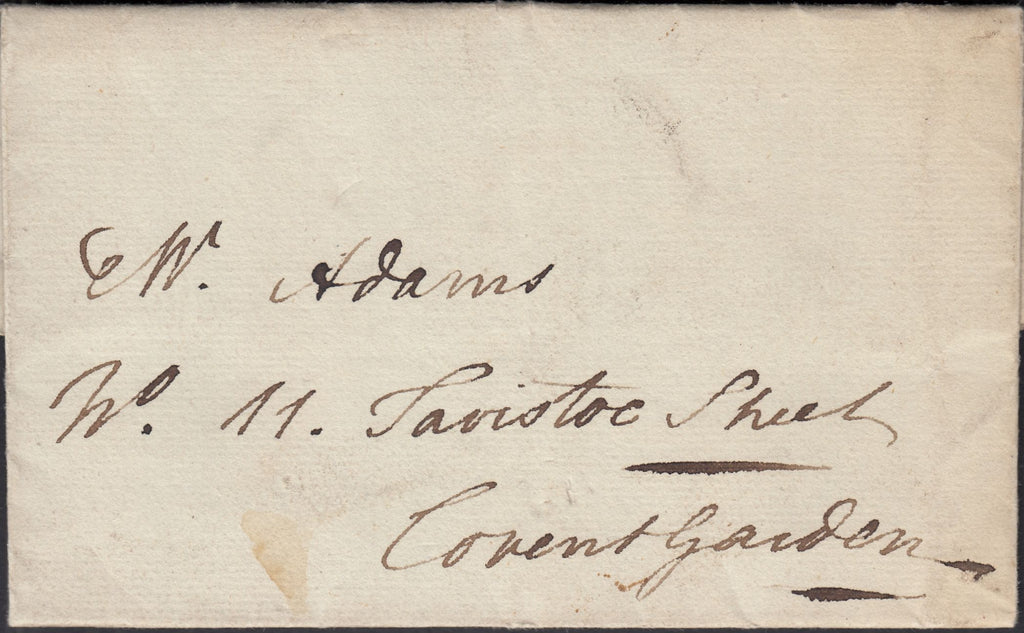 Mr. Adams
No. 11. Tavistoc Street
Covent Garden